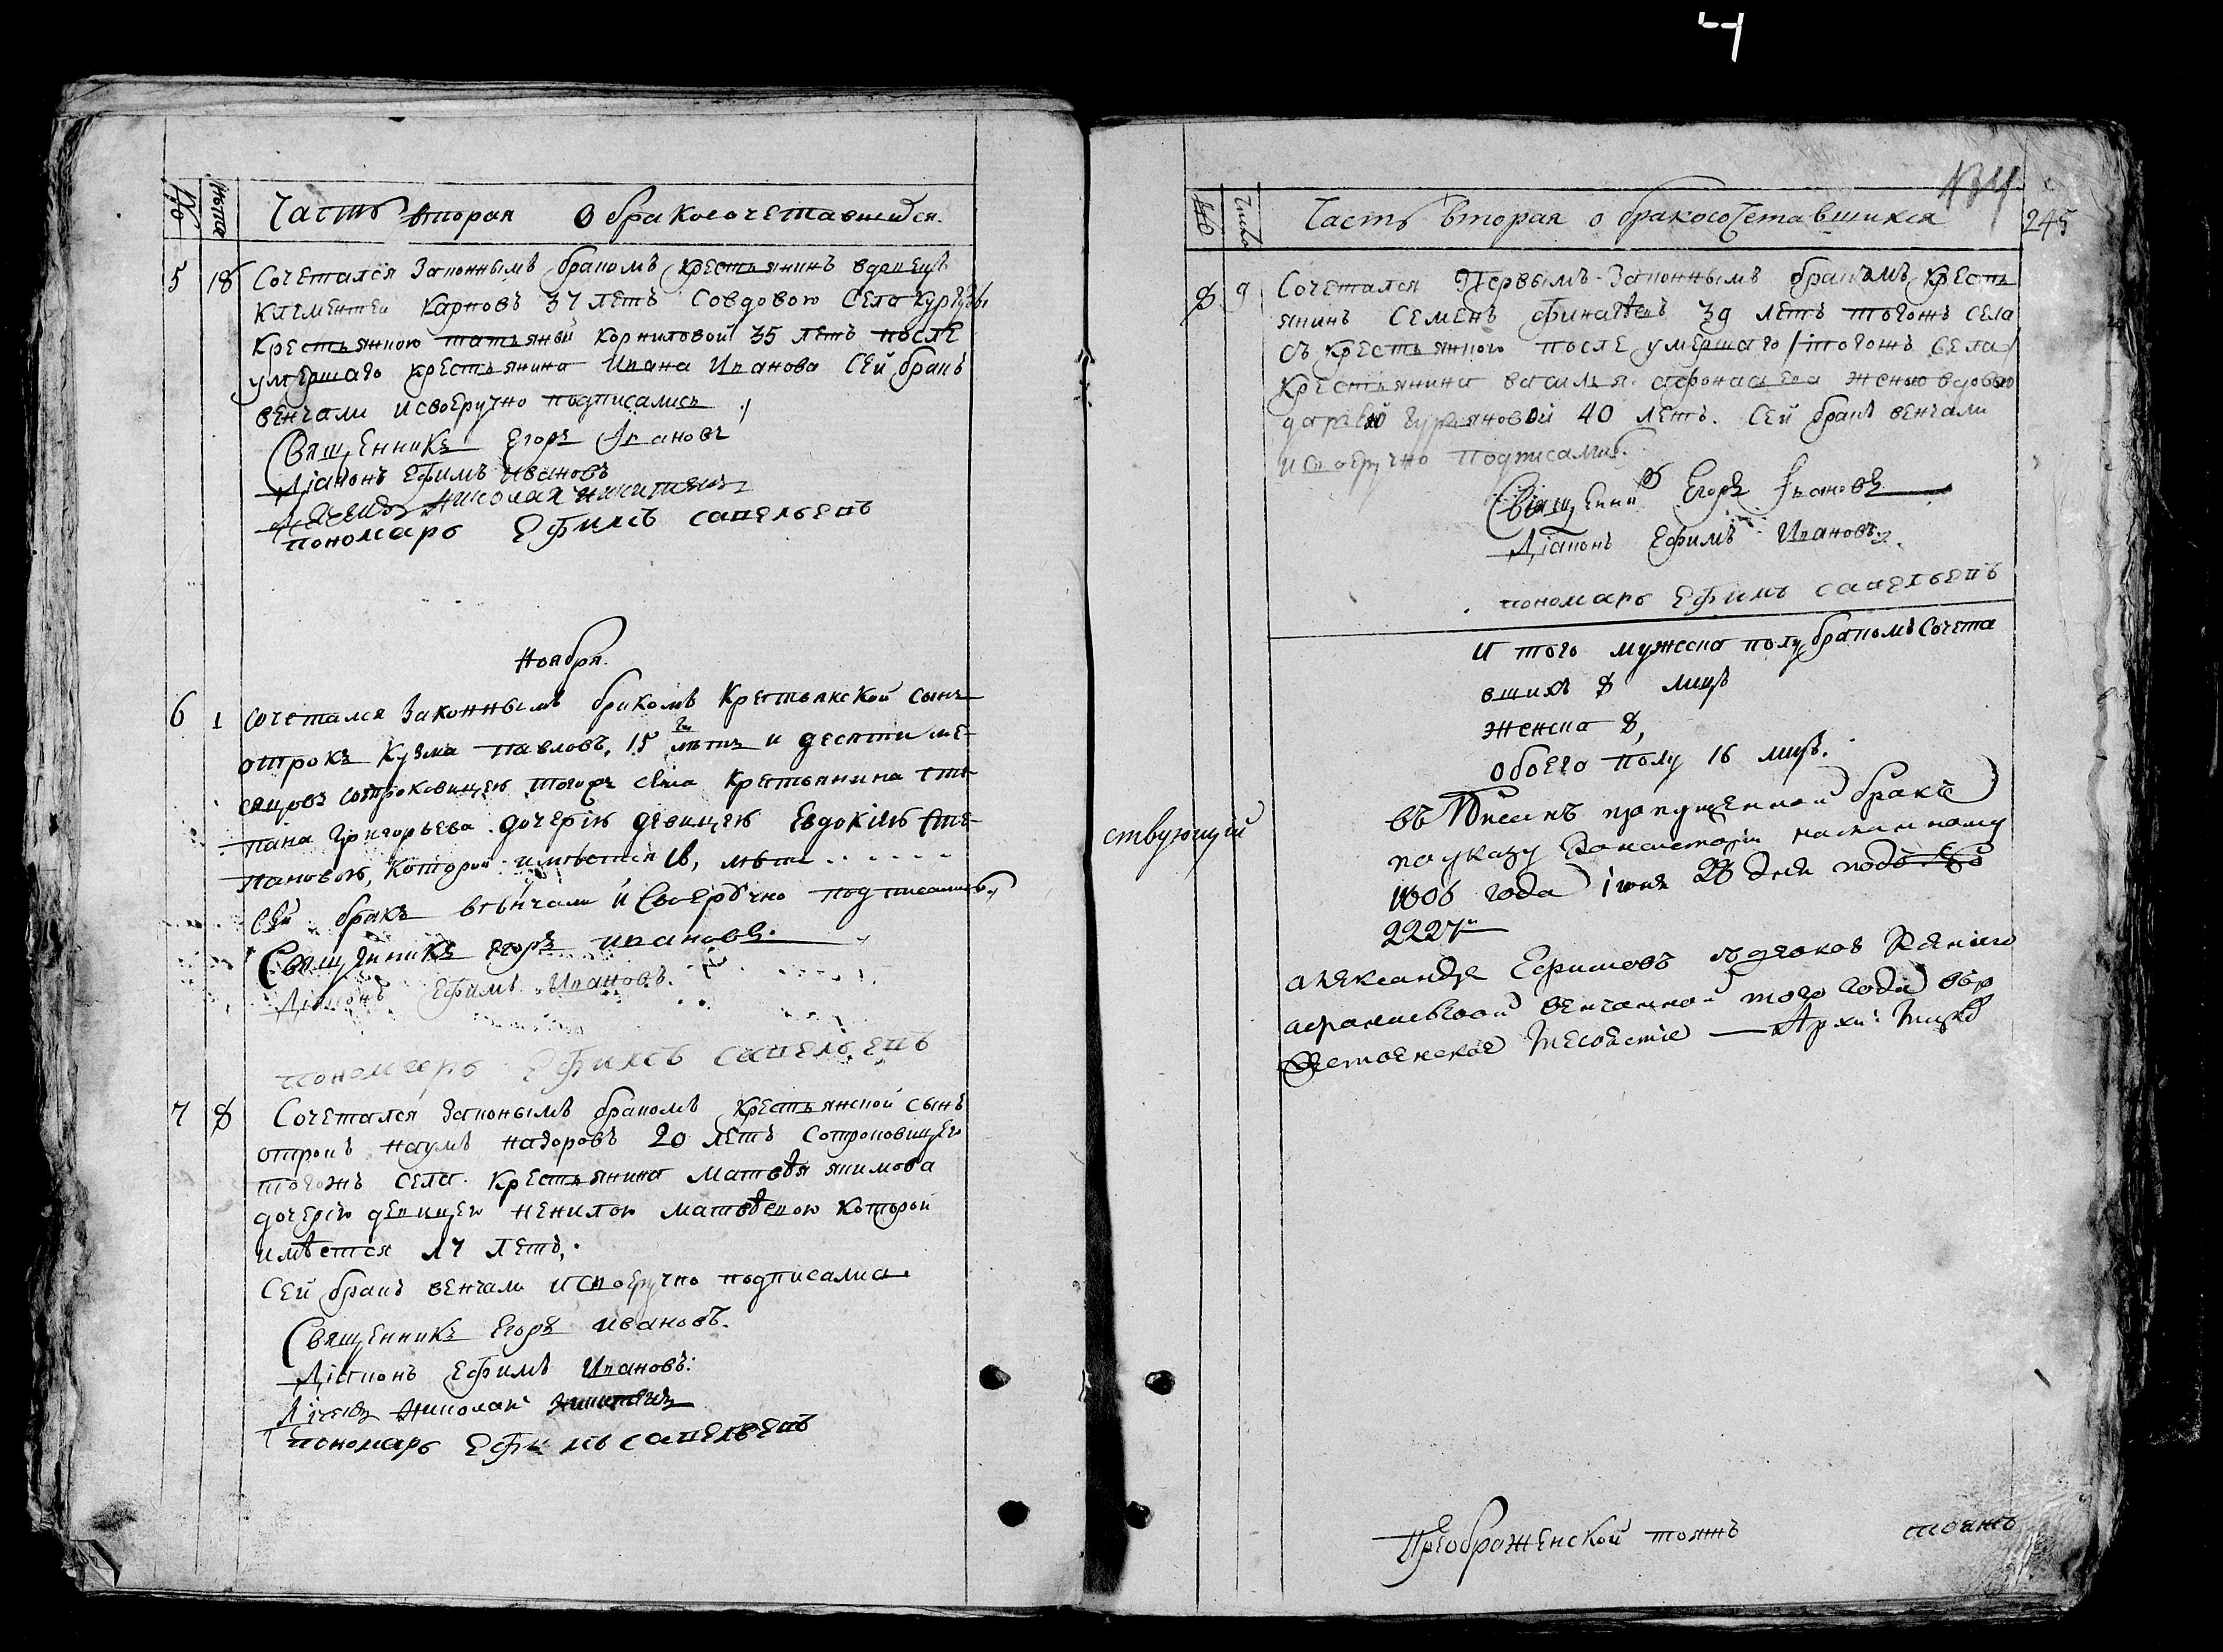 44
№
числа
Часть вторая О бракосочетавшихся.
5 18 Сочетался Законнымъ бракомъ крестьянинъ вдовецъ
клементеи Карповъ 37 летъ Совдовою Села кургузы
крестьянкою татьяной Корниловой 35 летъ после
умершаго крестьянина Ивана Иванова Сей бракъ
венчали исвоеручно подписались
Священникъ Егоръ Ивановъ
Діаконъ Ефимъ Ивановъ
Николай Никитинъ
пономарь Ефимъ савельевъ
Ноября.
6 1 сочетался Законнымъ бракомъ Крестьянской сынъ
отрокъ Кузма павловъ, 15 лѣтъ и десяти ме-
сяцовъ сотроковицею тогожъ села Крестьянина сте-
пана Григорьева дочерію девицею Евдокіею сте-
пановою, которой имѣется 18, лѣтъ
Сей бракъ вѣнчали и Своеручно подписались
Священникъ Егоръ ивановъ.
Діаконъ Ефимъ Ивановъ.
пономарь Ефимъ савельевъ
7 8 Сочетался законымъ бракомъ крестьянской сынъ
отрокъ наумъ назоровъ 20 летъ Сотроковицею
тогожъ села крестьянина Матвѣя якимова
дочерію девицею ненилою матвѣевою которой
имѣется 17 летъ,
Сей бракъ венчали исвоеручно подписались
Священникъ Егоръ ивановъ.
Діаконъ Ефимъ Ивановъ:
Николай Никитинъ
пономарь Ефимъ савельевъ
ствующій
134
245
№
числа
Часть вторая о бракосочетавшихся
8 9 Сочетался Первымъ Законнымъ бракомъ крестъ
янинъ Семенъ 39 летъ тогожъ села
съ крестьянкою после умершаго /тогожъ села/
крестьянина василья афонасьева женою вдовою
дарьею гурьяновой 40 летъ. Сей бракъ венчали
исвоеручно подписались.
Священникъ Егоръ Ивановъ
Діаконъ Ефимъ Ивановъ.
пономарь Ефимъ савельевъ
И того мужеска полу бракомъ Сочета
вшихъ 8 лицъ
женска 8,
обоего полу 16 лицъ.
въ пропущенной бракъ
по указу Консисторіи
1806 года іюня 28 дня подъ №
2227м
александръ Ефимовъ
венчанной того года
Преображенской тояжъ
тояжъ